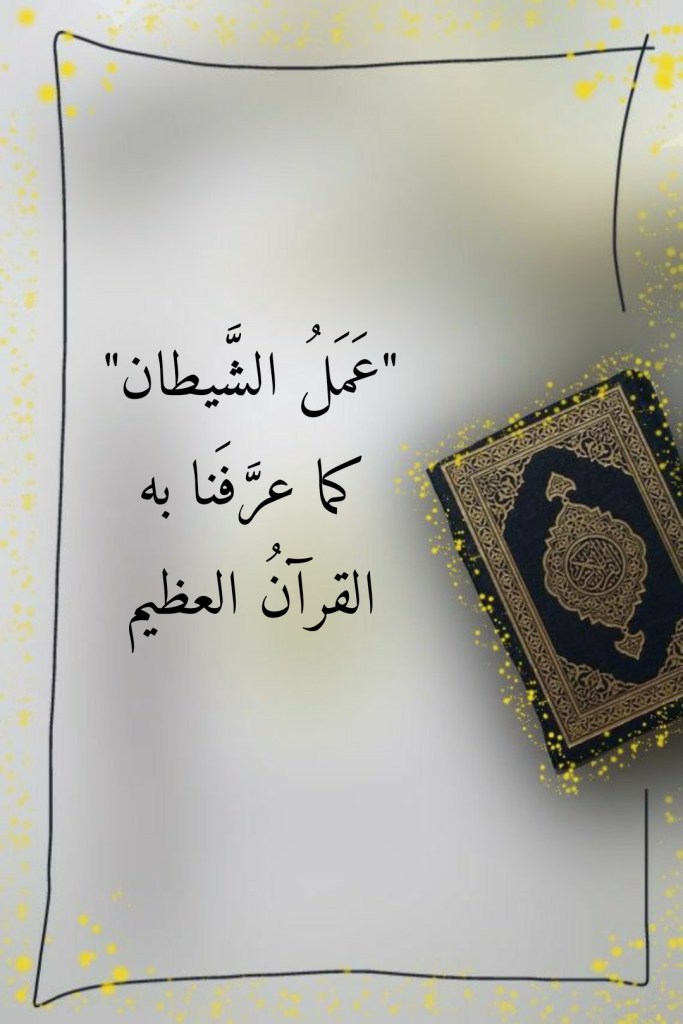 "عَمَلُ الشَّيطان"
كما عرَّفَنا به
القرآنُ العظيم